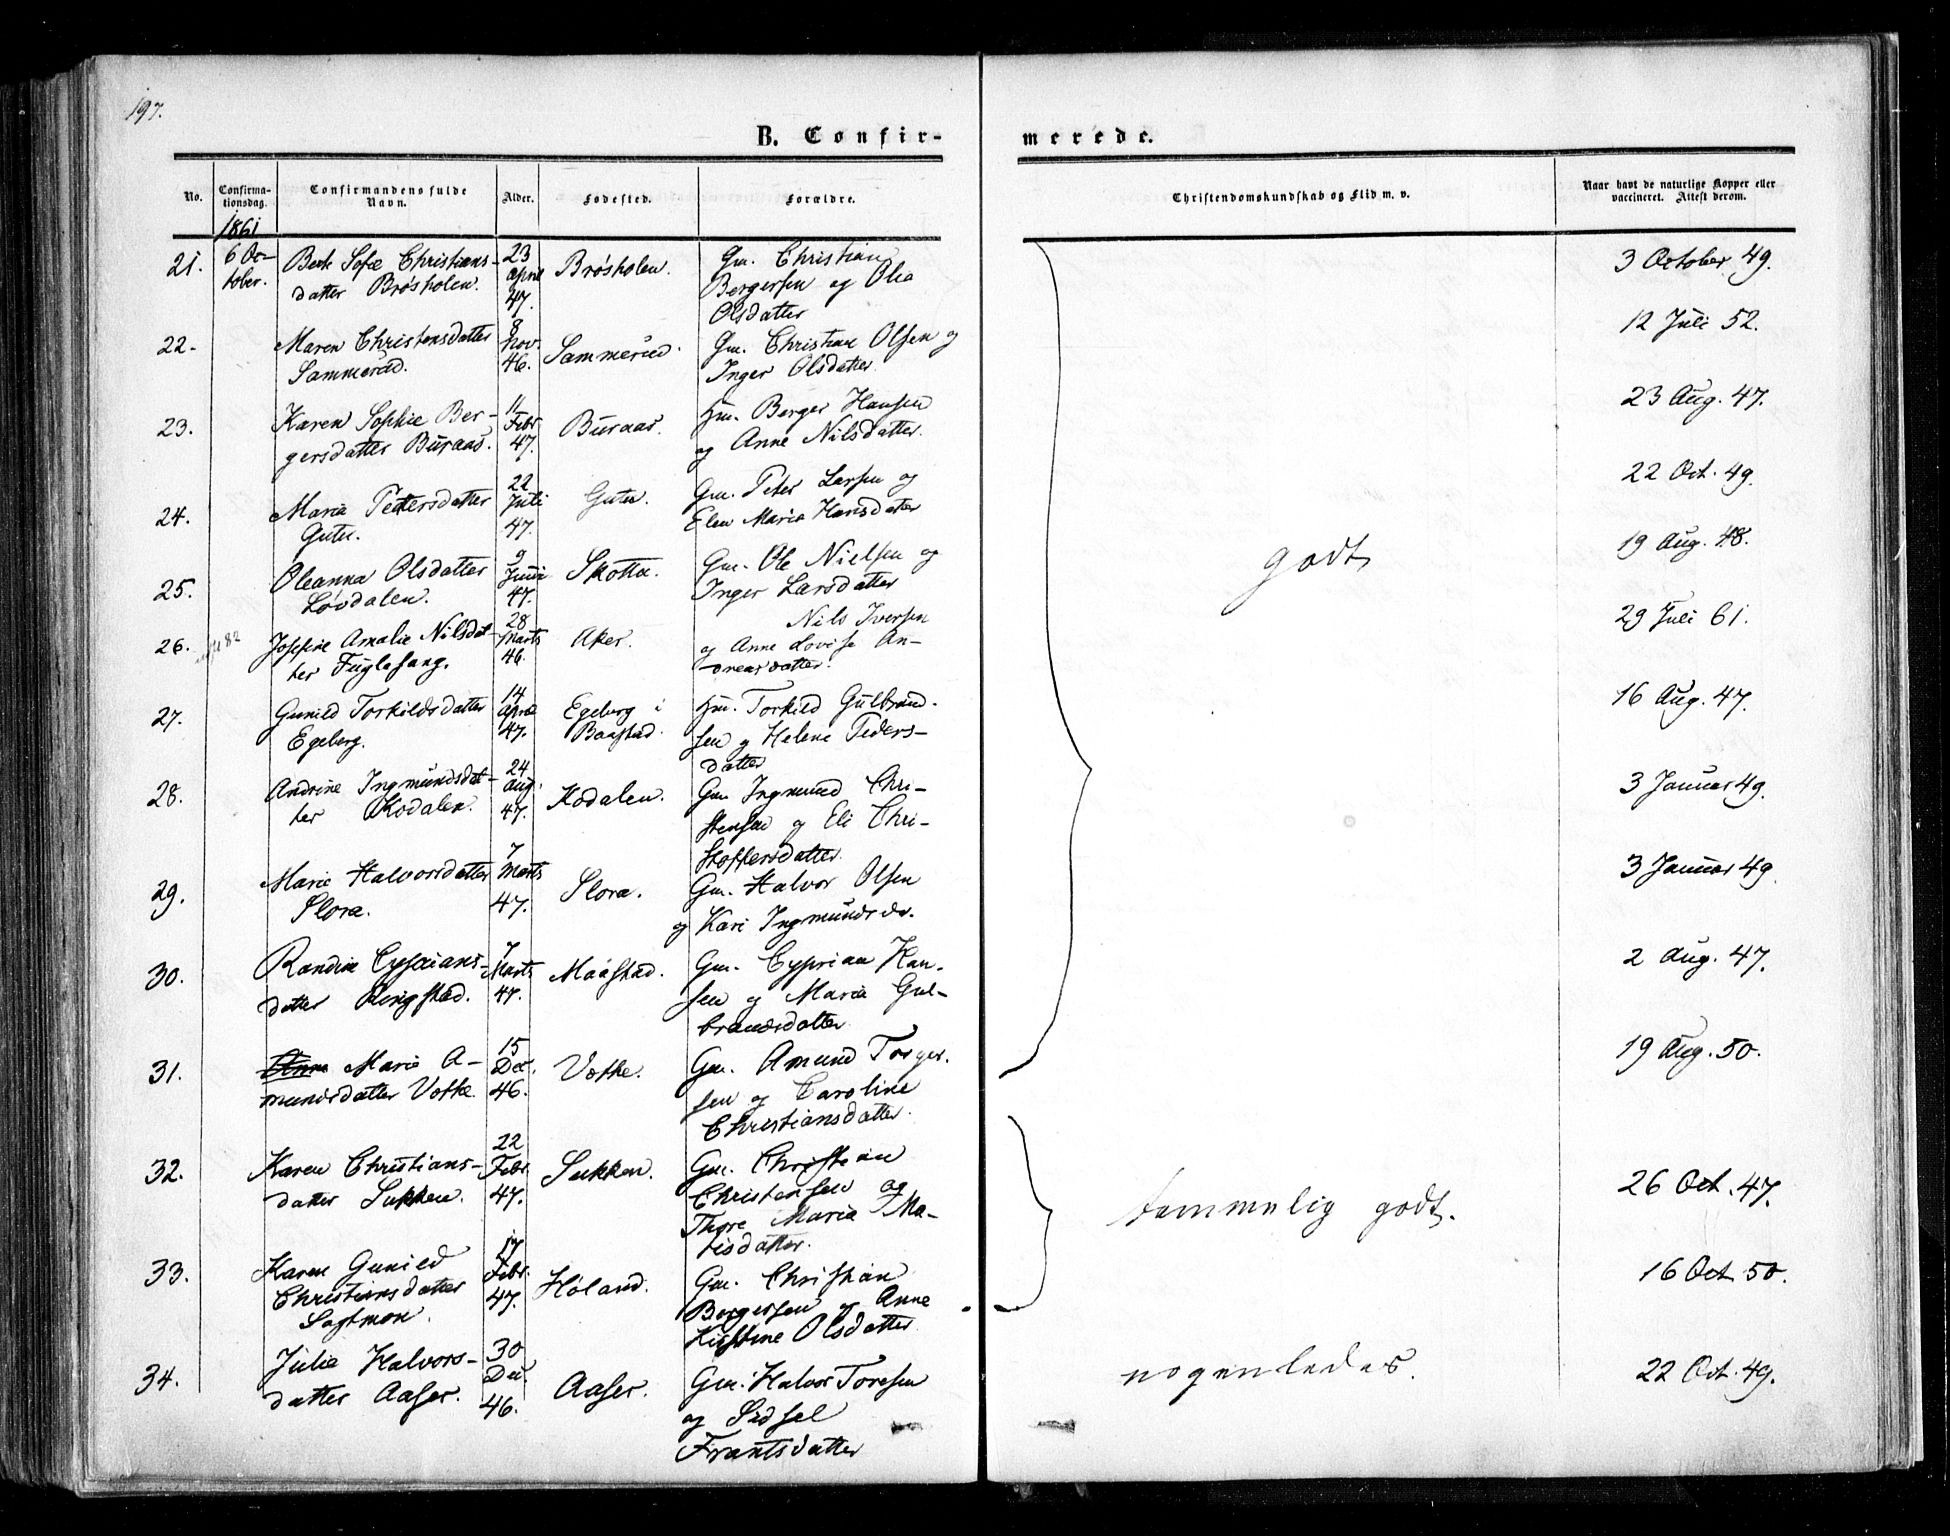 197.
B. Confirmerede.
No. | Confirmationsdag. | Confirmandens fulde Navn. | Alder. | Fødested. | Forældre. | Christendomskundskab og Flid m. v. | Naar havt de naturlige Kopper eller vaccineret. Attest derom.
1861
21. 6 Oc- Bert Sofie Christians- 23 Brøsholen. Gm. Christian 3 October 49.
tober. datter Brøsholen. April Bergersen og Olea
47. Olsdatter
22. Maren Christensdatter 8 Sammerud. Gm. Christian Olsen og 12 Juli 52.
Sammerud. Nov. Inger Olsdatter
46.
23. Karen Sophie Ber- 11 Buraas. Hm. Berger Hansen 23 Aug. 47.
gersdatter Buraas. Febr og Anne Nilsdatter.
47.
24. Maria Pettersdatter 22 Gutu. Gm. Peter Larsen og 22 Oct. 49.
Gutu. Juli Elen Maria Hansdatter
47.
25. Oleanna Olsdatter 9 Skotta. Gm. Ole Nielsen og godt 19 Aug. 48.
Løvdalen. Juni Inger Larsdatter
47.
26. Josefine Amalie Nilsdat- 28 Aker. Nils Iversen 29 Juli 61.
ter Fuglesang. Marts og Anne Lovise An-
46. dreasdatter.
27. Gunild Torkildsdatter 14 Egeberg i Hm. Torkild Gulbrand- 16 Aug. 47.
Egeberg. April Baastad. sen og Helene Peders-
47. datter
28. Andrine Ingmundsdat- 24 Kodalen. Gm Ingmund Chri- 3 Januar 49.
ter Kodalen. Aug. stensen og Eli Chri-
47. stoffersdatter.
29. Marie Halvorsdatter 7 Slora. Gm. Halvor Olsen 3 Januar 49.
Slora. Marts og Kari Ingmundsdr.
47.
30. Randine Cyprians- 7 Maastad. Gm. Cyprian Han- 2 Aug. 47.
datter Ringstad. Marts sen og Maria Gul-
47. brandsdatter
31. Anne Marie A- 15 Votke. Gm. Amund Torger- 19 Aug. 50.
mundsdatter Votke. Dec. sen og Caroline
46. Christiansdatter.
32. Karen Christians- 22 Sukken. Gm. Christian temmelig godt. 26 Oct. 47.
datter Sukken. Febr. Christensen og
47. Thore Maria Ma-
tisdatter.
33. Karen Gunild 17 Høland. Gm. Christian 16 Oct 50.
Christiansdatter Febr. Borgersen og Anne
Sagtmon. 47. Kirstine Olsdatter
34. Julie Halvors- 30 Aaser. Gm. Halvor Toresen nogenledes. 22 Oct. 49.
datter Aaser. Dec. og Sidsel
46. Frantsdatter